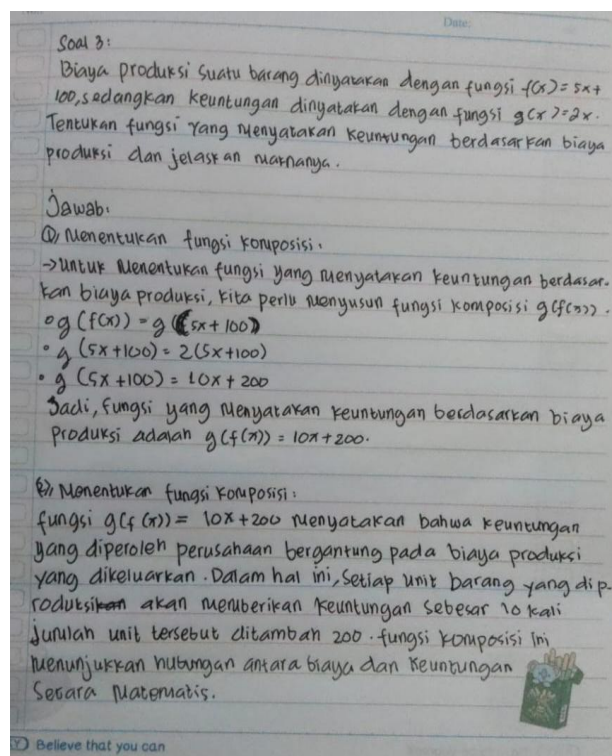 Date:
Soal 3:
Biaya produksi suatu barang dinyatakan dengan fungsi f(x) = 5x+
100, sedangkan keuntungan dinyatakan dengan fungsi g(x) = 2x.
Tentukan fungsi yang menyatakan keuntungan berdasarkan biaya
produksi dan jelaskan maknanya.
Jawab:
1) Menentukan fungsi komposisi:
→ untuk menentukan fungsi yang menyatakan keuntungan berdasar-
kan biaya produksi, kita perlu menyusun fungsi komposisi g(f(x)).
• g(f(x)) = g((5x + 100)
• g(5x+100) = 2(5x+100)
• g(5x+100) = 10x + 200
Jadi, fungsi yang menyatakan keuntungan berdasarkan biaya
produksi adalah g(f(x)) = 10x + 200.
2) Menentukan fungsi komposisi:
fungsi g(f(x)) = 10x + 200 menyatakan bahwa keuntungan
yang diperoleh perusahaan bergantung pada biaya produksi
yang dikeluarkan. Dalam hal ini, setiap unit barang yang dip-
roduksikan akan memberikan keuntungan sebesar 10 kali
jumlah unit tersebut ditambah 200. fungsi komposisi ini
menunjukkan hubungan antara biaya dan keuntungan
secara matematis.
Believe that you can